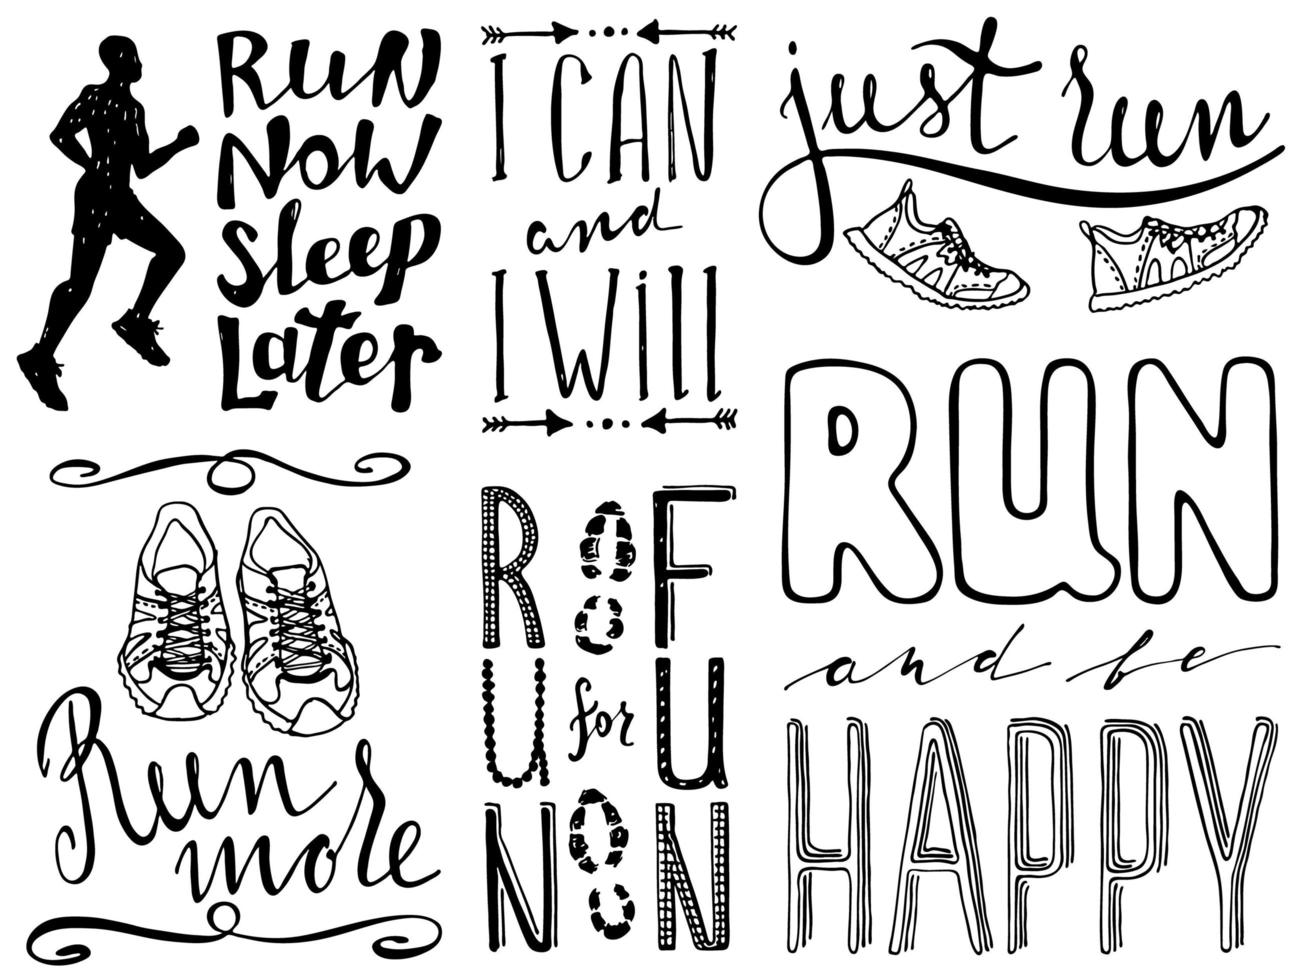 RUN
NOW
Sleep
Later
I CAN
and
I Will
just run
Run
more
RUN
for
FUN
RUN
and be
HAPPY